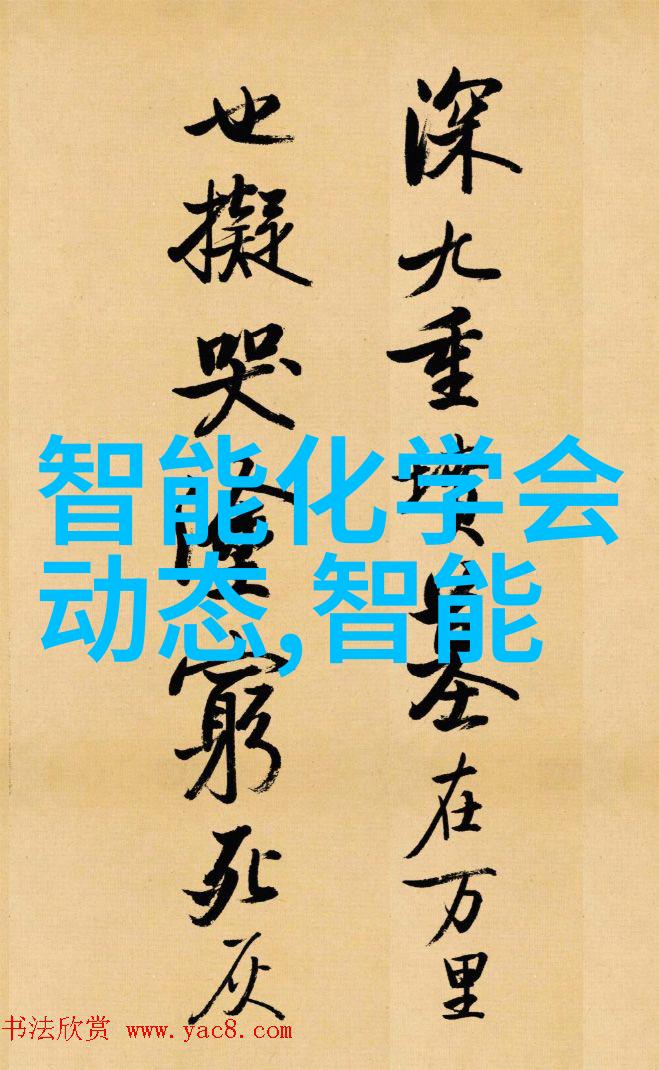 深九重墳墓在万里
也擬哭塗窮死灰
智能化学会
动态,智能
书法欣赏 www.yac8.com